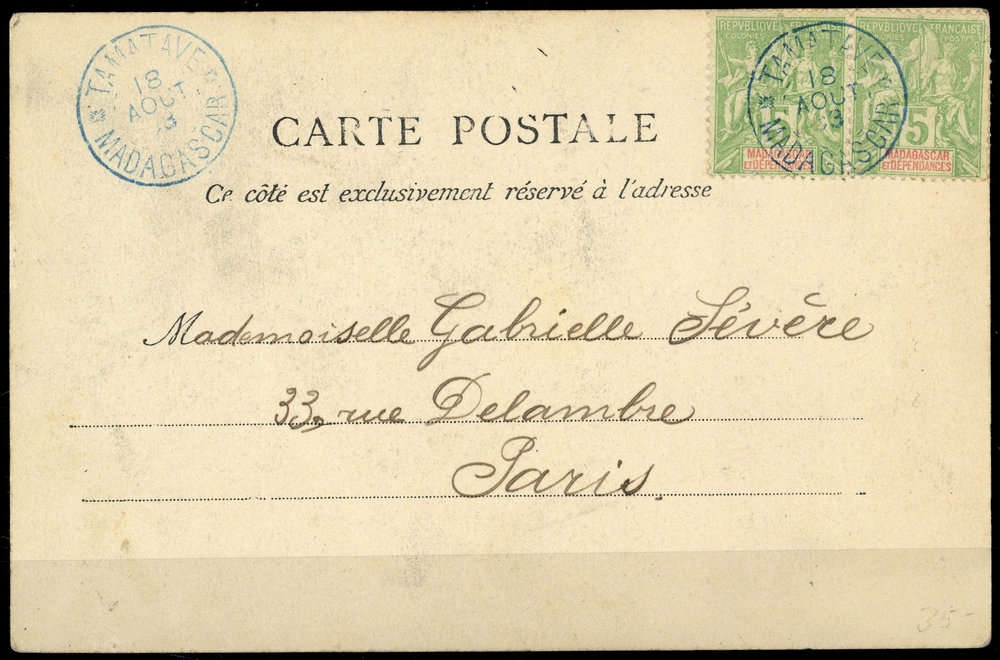 TAMATAVE
18
AOUT
MADAGASCAR
REPVBLIQVE FRANÇAISE
COLONIES POSTES
5
MADAGASCAR
ET DÉPENDANCES
REPVBLIQVE FRANÇAISE
5
MADAGASCAR
ET DÉPENDANCES
TAMATAVE
18
AOUT
MADAGASCAR
CARTE POSTALE
Ce côté est exclusivement réservé à l'adresse
Mademoiselle Gabrielle Sévère
33, rue Delambre
Paris.
35-